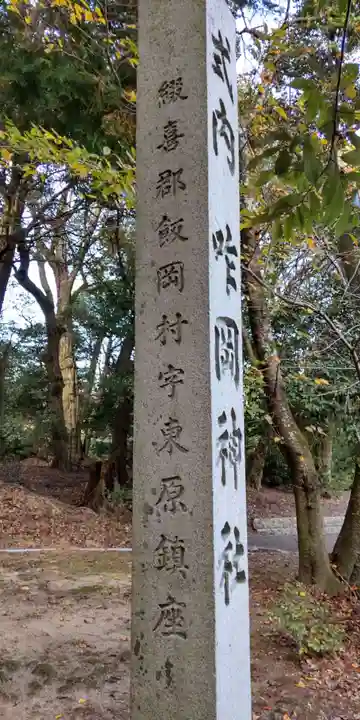 式内 咋岡神社
綴喜郡飯岡村字東原鎮座